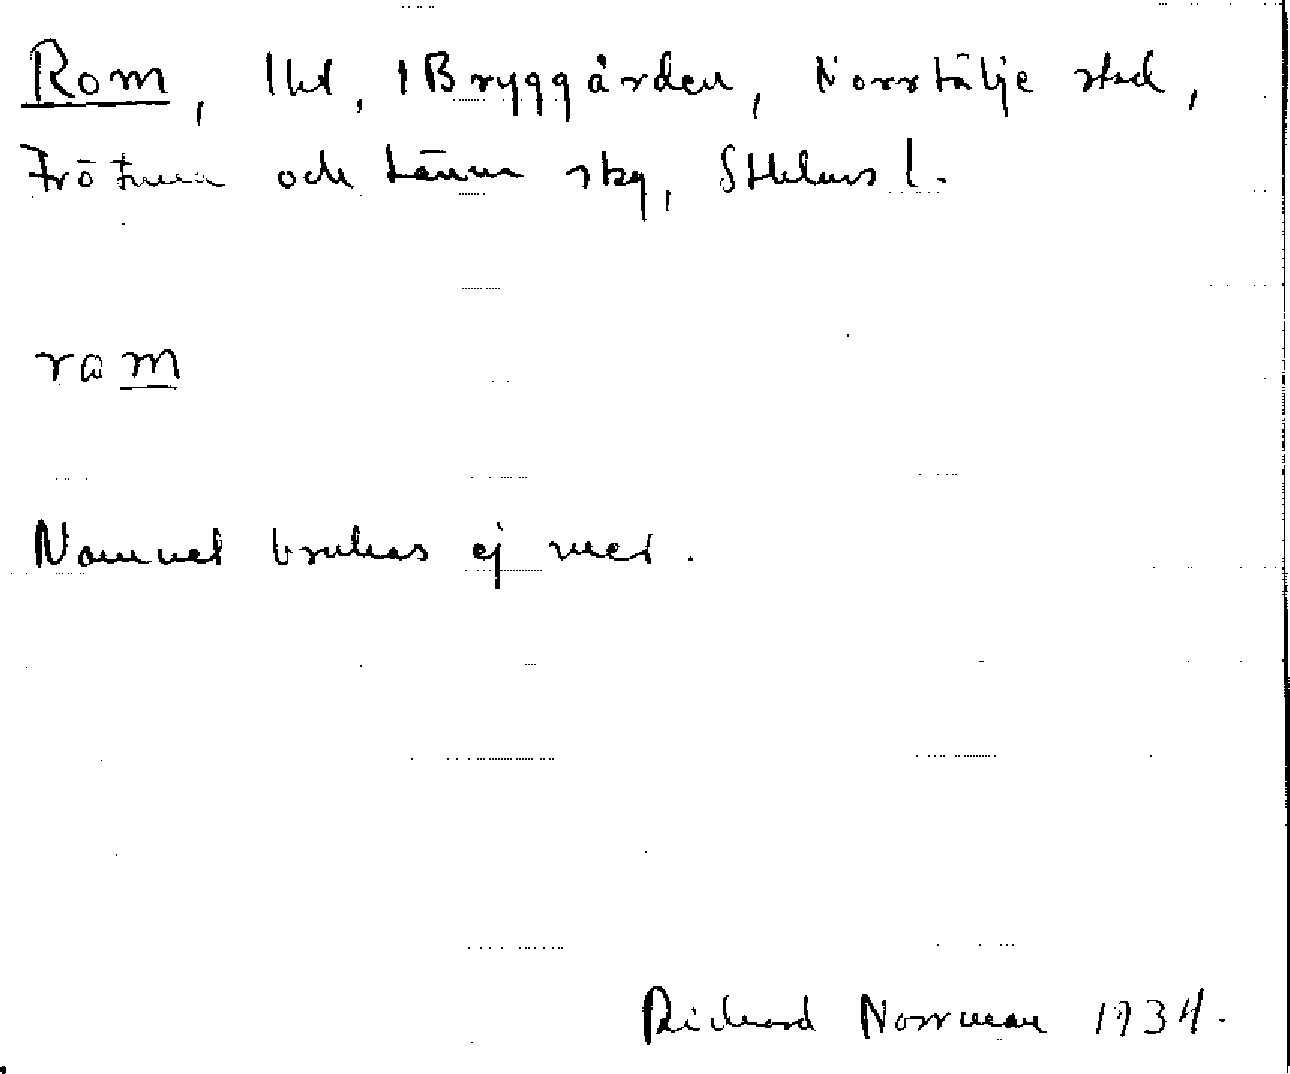 Rom, lht, 1 Bryggården, Norrtälje stad,
Frötuna och Länna skg, Sthlms l.
rom
Namnet brukas ej mer.
Richard Norrman 1934.